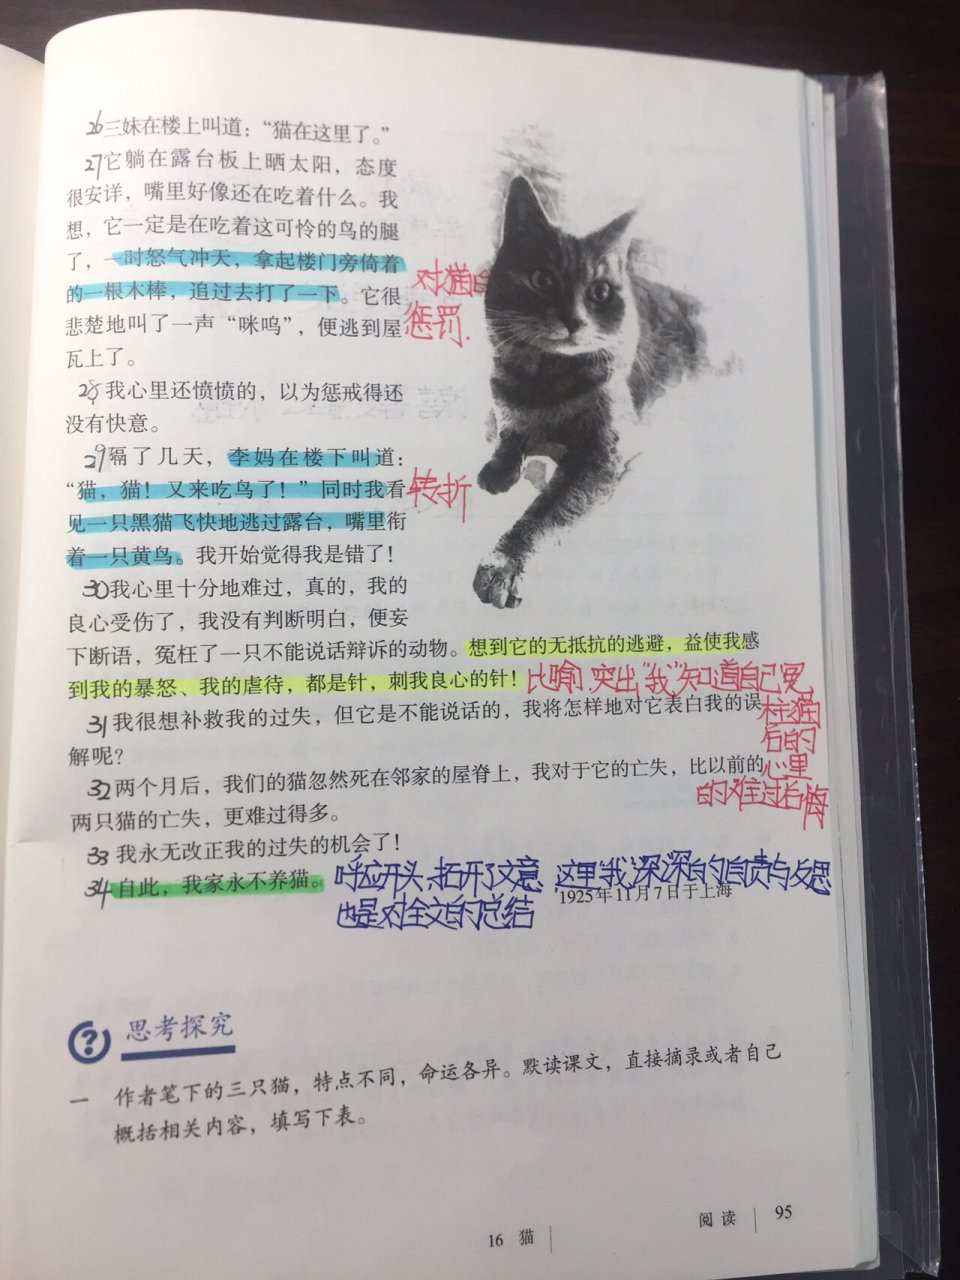 26三妹在楼上叫道：“猫在这里了。”
27它躺在露台板上晒太阳，态度
很安详，嘴里好像还在吃着什么。我
想，它一定是在吃着这可怜的鸟的腿
了，一时怒气冲天，拿起楼门旁倚着
的一根木棒，追过去打了一下。它很
悲楚地叫了一声“咪呜”，便逃到屋
瓦上了。
对猫的
惩罚.
28我心里还愤愤的，以为惩戒得还
没有快意。
29隔了几天，李妈在楼下叫道：
“猫，猫！又来吃鸟了！”同时我看
见一只黑猫飞快地逃过露台，嘴里衔
着一只黄鸟。我开始觉得我是错了！
转折
30我心里十分地难过，真的，我的
良心受伤了，我没有判断明白，便妄
下断语，冤枉了一只不能说话辩诉的动物。想到它的无抵抗的逃避，益使我感
到我的暴怒、我的虐待，都是针，刺我良心的针！
比喻.突出“我”知道自己冤
枉猫
后的
心里
的难过后悔
31我很想补救我的过失，但它是不能说话的，我将怎样地对它表白我的误
解呢？
32两个月后，我们的猫忽然死在邻家的屋脊上，我对于它的亡失，比以前的
两只猫的亡失，更难过得多。
33我永无改正我的过失的机会了！
34自此，我家永不养猫。
呼应开头、拓开了文意 这里“我”深深的自责与反思
也是对全文的总结
1925年11月7日于上海
思考探究
一 作者笔下的三只猫，特点不同，命运各异。默读课文，直接摘录或者自己
概括相关内容，填写下表。
16 猫
阅读 95